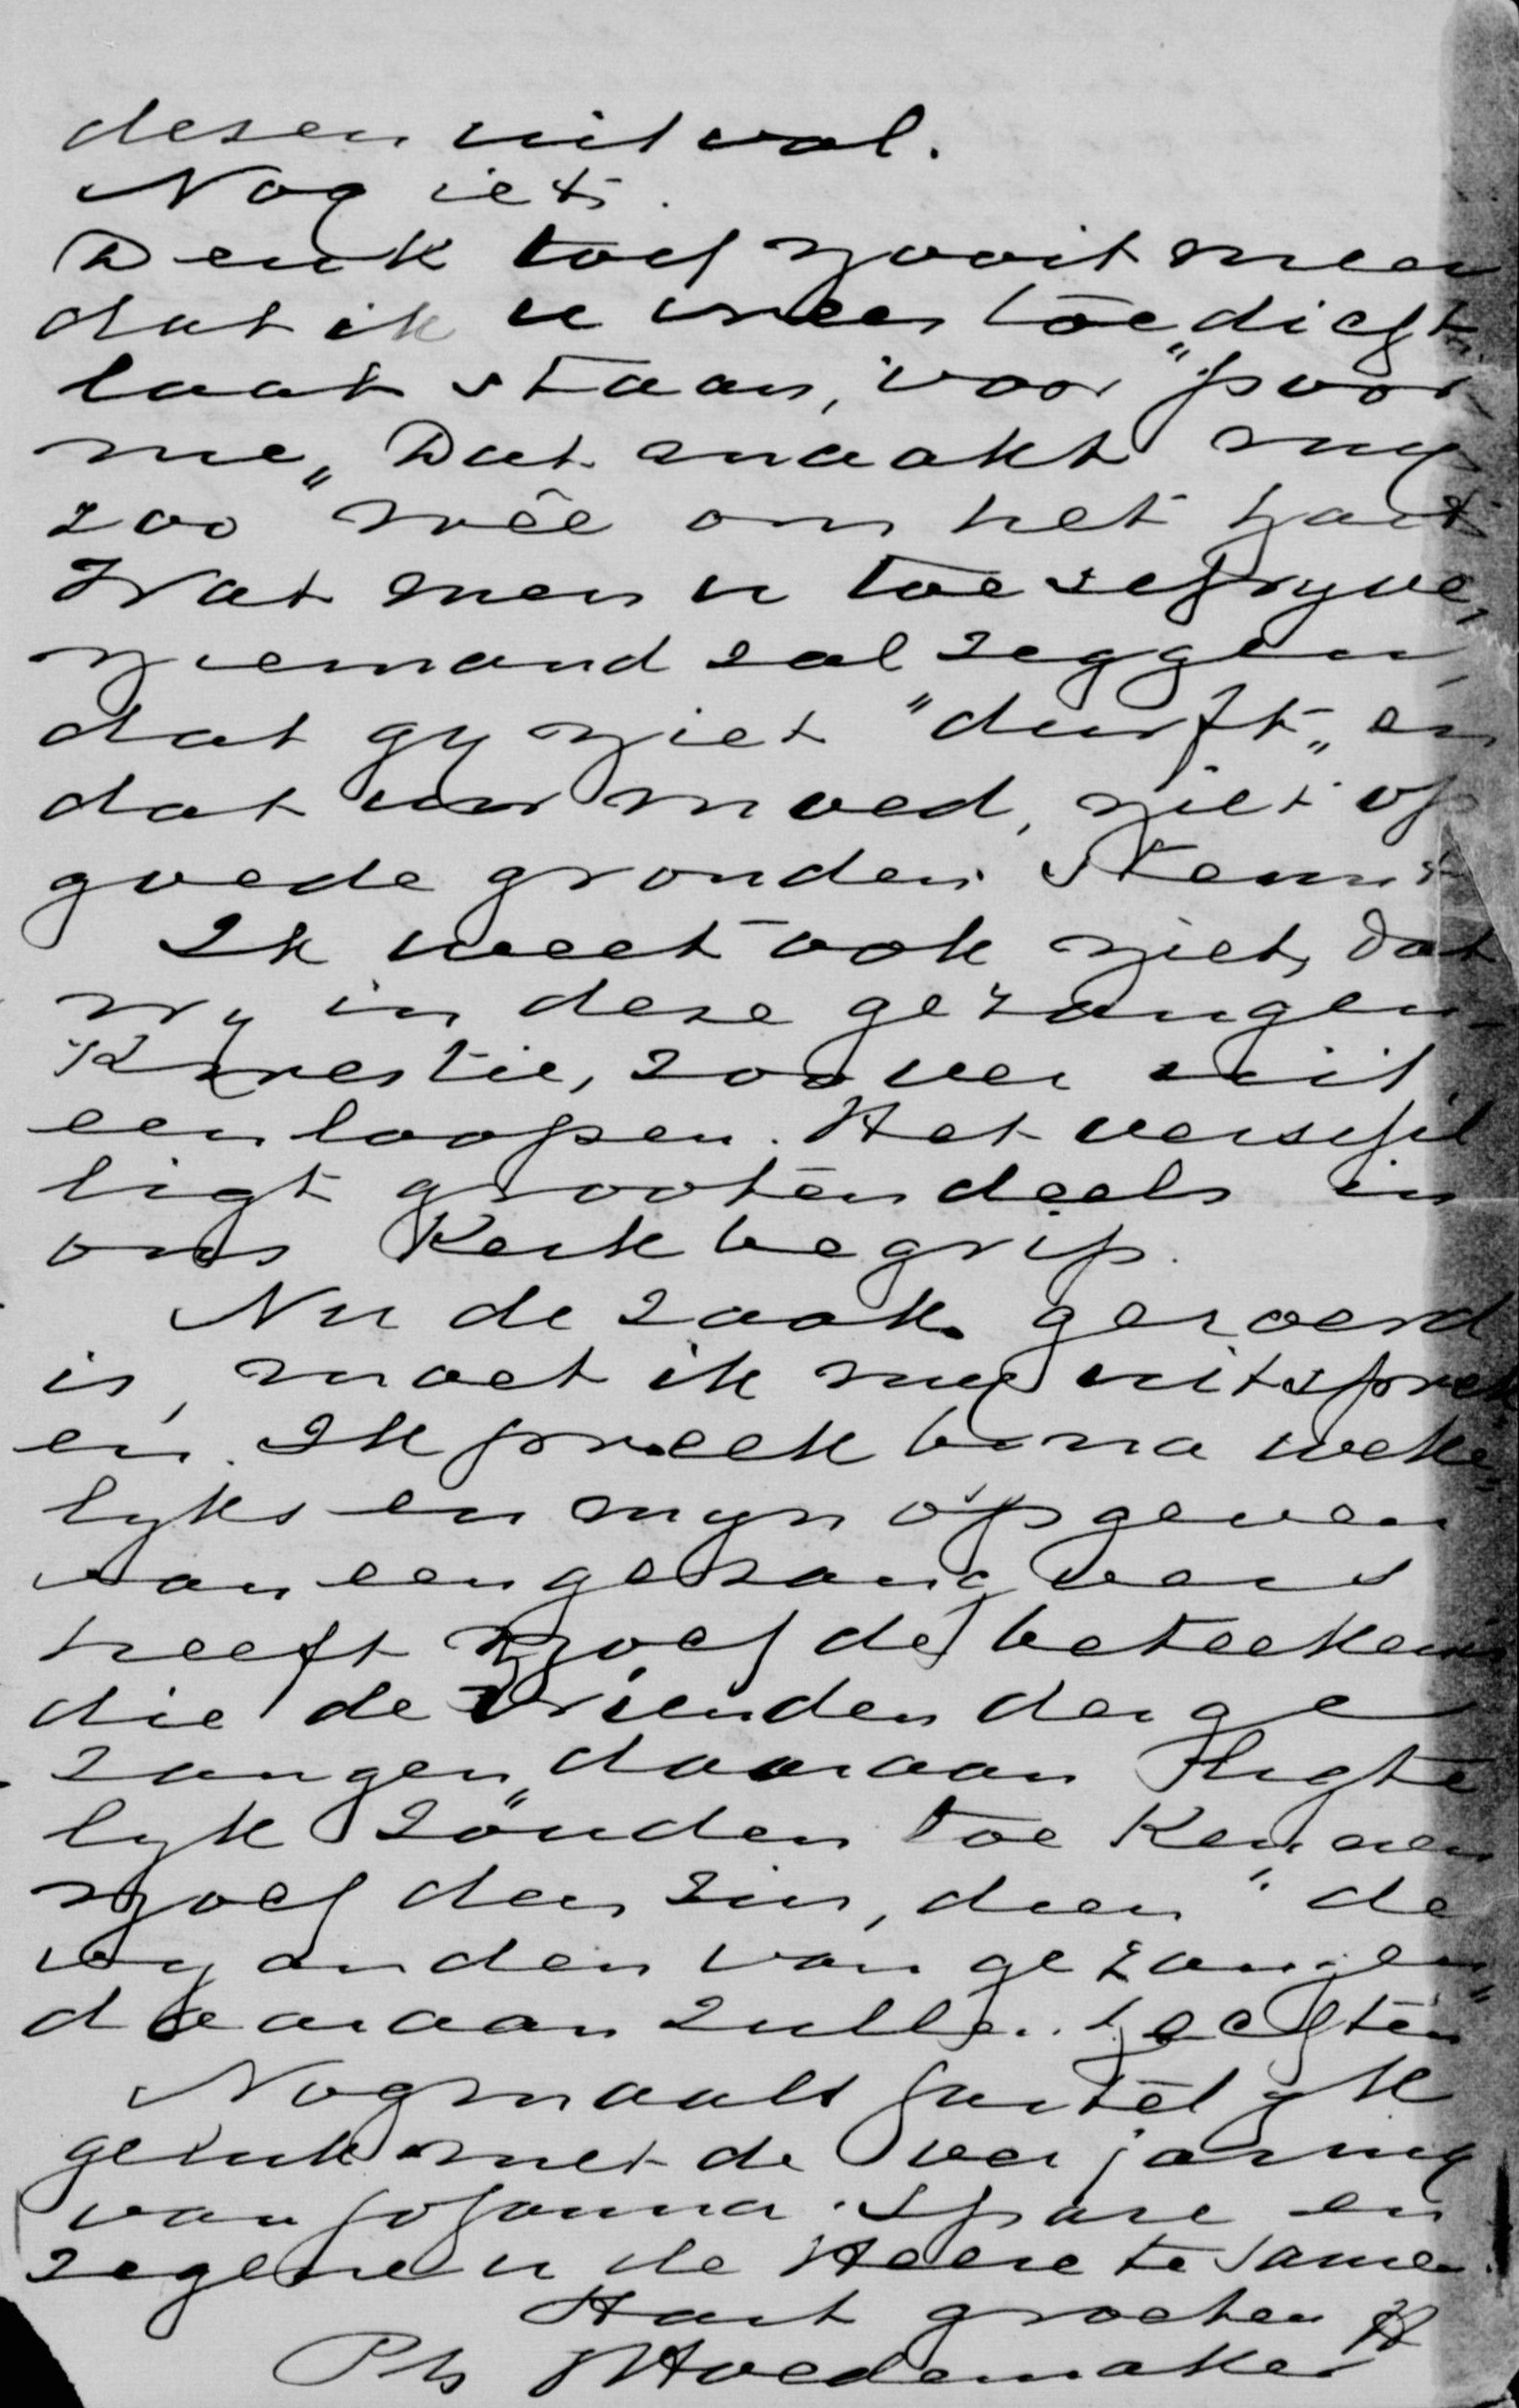 dezen uitval.
Nog iets.
Denk toch nooit meer
dat ik u vrees toedicht,
laat staan, voor "poor
me" Dat maakt my
zoo wêe om het hart
Wat men u toeschryve,
niemand zal zeggen,
dat gy niet "durft" en
dat uw moed, niet op
goede gronden steunt
Ik weet ook niet, dat
wy in deze gezangen-
Kwestie, zoo ver uit
een loopen. Het verschil
ligt grootendeels in
ons Kerkbegrip.
Nu de zaak geroerd
is, moet ik my uitsprek
en. Ik preek byna weke
lyks en myn opgeven
van een gezangvers
heeft noch de beteekenis
die de "vrienden der ge
zangen" daaraan
lyk zouden toe kennen
noch den zin, dien "de
vyanden van gezangen"
daaraan zullen hechten
Nogmaals hartelyk
geluk met de verjaring
van Johanna. Spare en
zegene u de Heere te samen.
Hart groeten
Ph J Hoedemaker